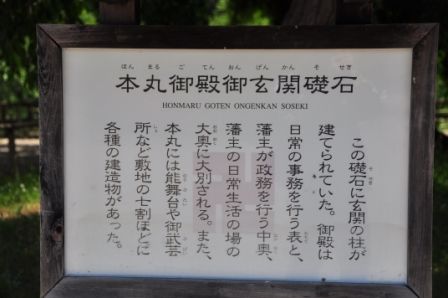 ほんまるごてんおんげんかんそせき
本丸御殿御玄関礎石
HONMARU GOTEN ONGENKAN SOSEKI
この礎石に玄関の柱が
建てられていた。御殿は
日常の事務を行う表と、
藩主が政務を行う中奥、
藩主の日常生活の場の
大奥に大別される。また、
本丸には能舞台や御武芸
所など敷地の七割ほどに
各種の建造物があった。